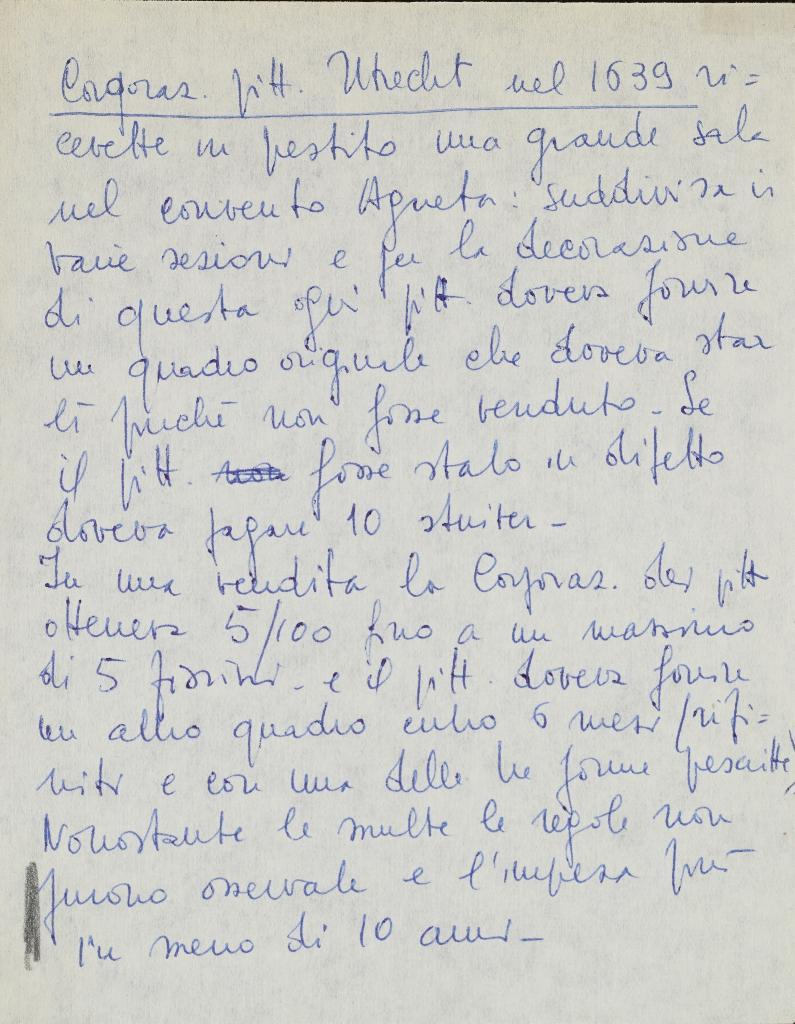 Corporaz. pitt. Utrecht nel 1639 ri=
cevette in prestito una grande sala
nel convento Agneta: suddivisa in
varie sezioni e per la decorazione
di questa ogni pitt. doveva fornire
un quadro originale che doveva star
lì finché non fosse venduto - Se
il pitt. non fosse stato in difetto
doveva pagare 10 stuiver -
In una vendita la Corporaz. dei pitt
otteneva 5/100 fino a un massimo
di 5 fiorini - e il pitt. doveva fornire
un altro quadro entro 6 mesi (rifi=
niti e con una delle tre forme prescritte)
Nonostante le multe le regole non
furono osservate e l'impresa finì
in meno di 10 anni -